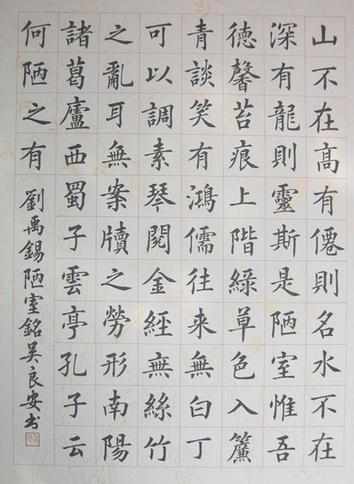 山不在高有僊則名水不在
深有龍則靈斯是陋室惟吾
德馨苔痕上階綠草色入簾
青談笑有鴻儒往來無白丁
可以調素琴閱金經無絲竹
之亂耳無案牘之勞形南陽
諸葛廬西蜀子雲亭孔子云
何陋之有 劉禹錫陋室銘吳良安书